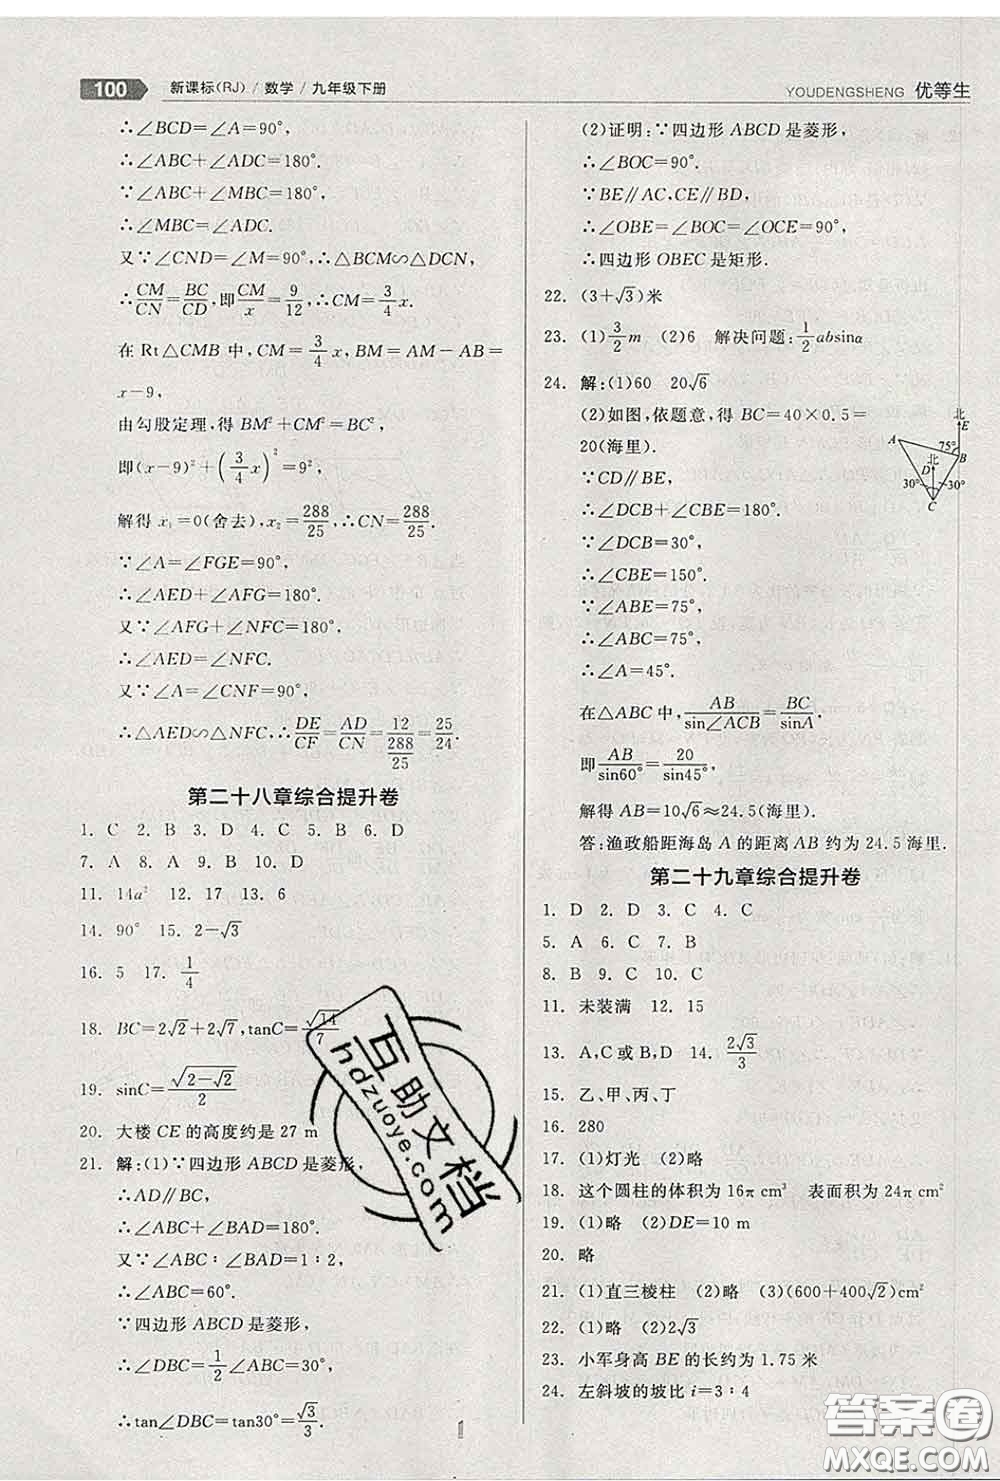 100 新课标(RJ)/数学/九年级下册
YOUDENGSHENG 优等生
∴∠BCD=∠A=90°,
∴∠ABC+∠ADC=180°.
∵∠ABC+∠MBC=180°,
∴∠MBC=∠ADC.
又∵∠CND=∠M=90°,∴△BCM∽△DCN,
∴CM/CN=BC/CD,即CM/x=9/12,∴CM=3/4 x.
在 Rt△CMB 中,CM=3/4 x,BM=AM-AB=
x-9,
由勾股定理,得 BM²+CM²=BC²,
即(x-9)²+(3/4 x)²=9²,
解得 x₁=0(舍去),x₂=288/25,∴CN=288/25.
∵∠A=∠FGE=90°,
∴∠AED+∠AFG=180°.
又∵∠AFG+∠NFC=180°,
∴∠AED=∠NFC.
又∵∠A=∠CNF=90°,
∴△AED∽△NFC,∴DE/CF=AD/CN=12/(288/25)=25/24.
第二十八章综合提升卷
1. C 2. B 3. D 4. C 5. B 6. D
7. A 8. A 9. B 10. D
11. 14a² 12. 17 13. 6
14. 90° 15. 2-√3
16. 5 17. 1/4
18. BC=2√2+2√7,tanC=√14/7
19. sinC=√(2-√2)/2
20. 大楼 CE 的高度约是 27 m
21. 解:(1)∵四边形 ABCD 是菱形,
∴AD∥BC,
∴∠ABC+∠BAD=180°.
又∵∠ABC∶∠BAD=1∶2,
∴∠ABC=60°.
∵四边形 ABCD 是菱形,
∴∠DBC=1/2∠ABC=30°,
∴tan∠DBC=tan30°=√3/3.
(2)证明:∵四边形 ABCD 是菱形,
∴∠BOC=90°.
∵BE∥AC,CE∥BD,
∴∠OBE=∠BOC=∠OCE=90°,
∴四边形 OBEC 是矩形.
22. (3+√3)米
23. (1)3/2 m (2)6 解决问题:1/2 absinα
24. 解:(1)60 20√6
(2)如图,依题意,得 BC=40×0.5=
20(海里).
∵CD∥BE,
∴∠DCB+∠CBE=180°.
∵∠DCB=30°,
∴∠CBE=150°.
∵∠ABE=75°,
∴∠ABC=75°,
∴∠A=45°.
在△ABC 中,AB/sin∠ACB=BC/sinA,
即AB/sin60°=20/sin45°,
解得 AB=10√6≈24.5(海里).
答:渔政船距海岛 A 的距离 AB 约为 24.5 海里.
北
E
A
75°
北
D
B
30°
30°
C
第二十九章综合提升卷
1. D 2. D 3. C 4. C
5. A 6. C 7. B
8. B 9. C 10. C
11. 未装满 12. 15
13. A,C 或 B,D 14. 2√3/3
15. 乙、甲、丙、丁
16. 280
17. (1)灯光 (2)略
18. 这个圆柱的体积为 16π cm³ 表面积为 24π cm²
19. (1)略 (2)DE=10 m
20. 略
21. (1)直三棱柱 (2)略 (3)(600+400√2)cm²
22. (1)略 (2)2√3
23. 小军身高 BE 的长约为 1.75 米
24. 左斜坡的坡比 i=3∶4
互助文档
hdzuoye.com
答案圈
MXQE.COM
1